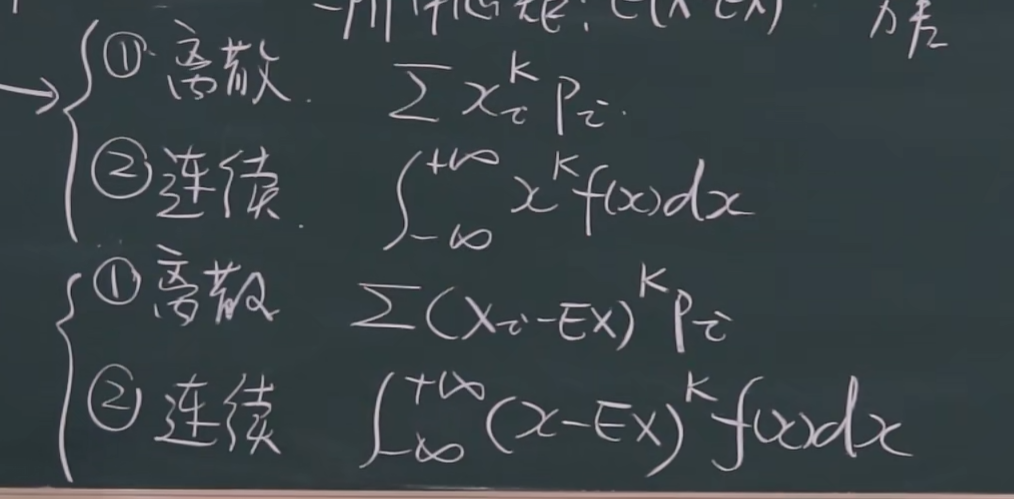 方差
① 离散. ∑ x_i^k p_i.
② 连续. ∫_{-∞}^{+∞} x^k f(x)dx
① 离散 ∑(x_i-EX)^k p_i
② 连续 ∫_{-∞}^{+∞} (x-EX)^k f(x)dx